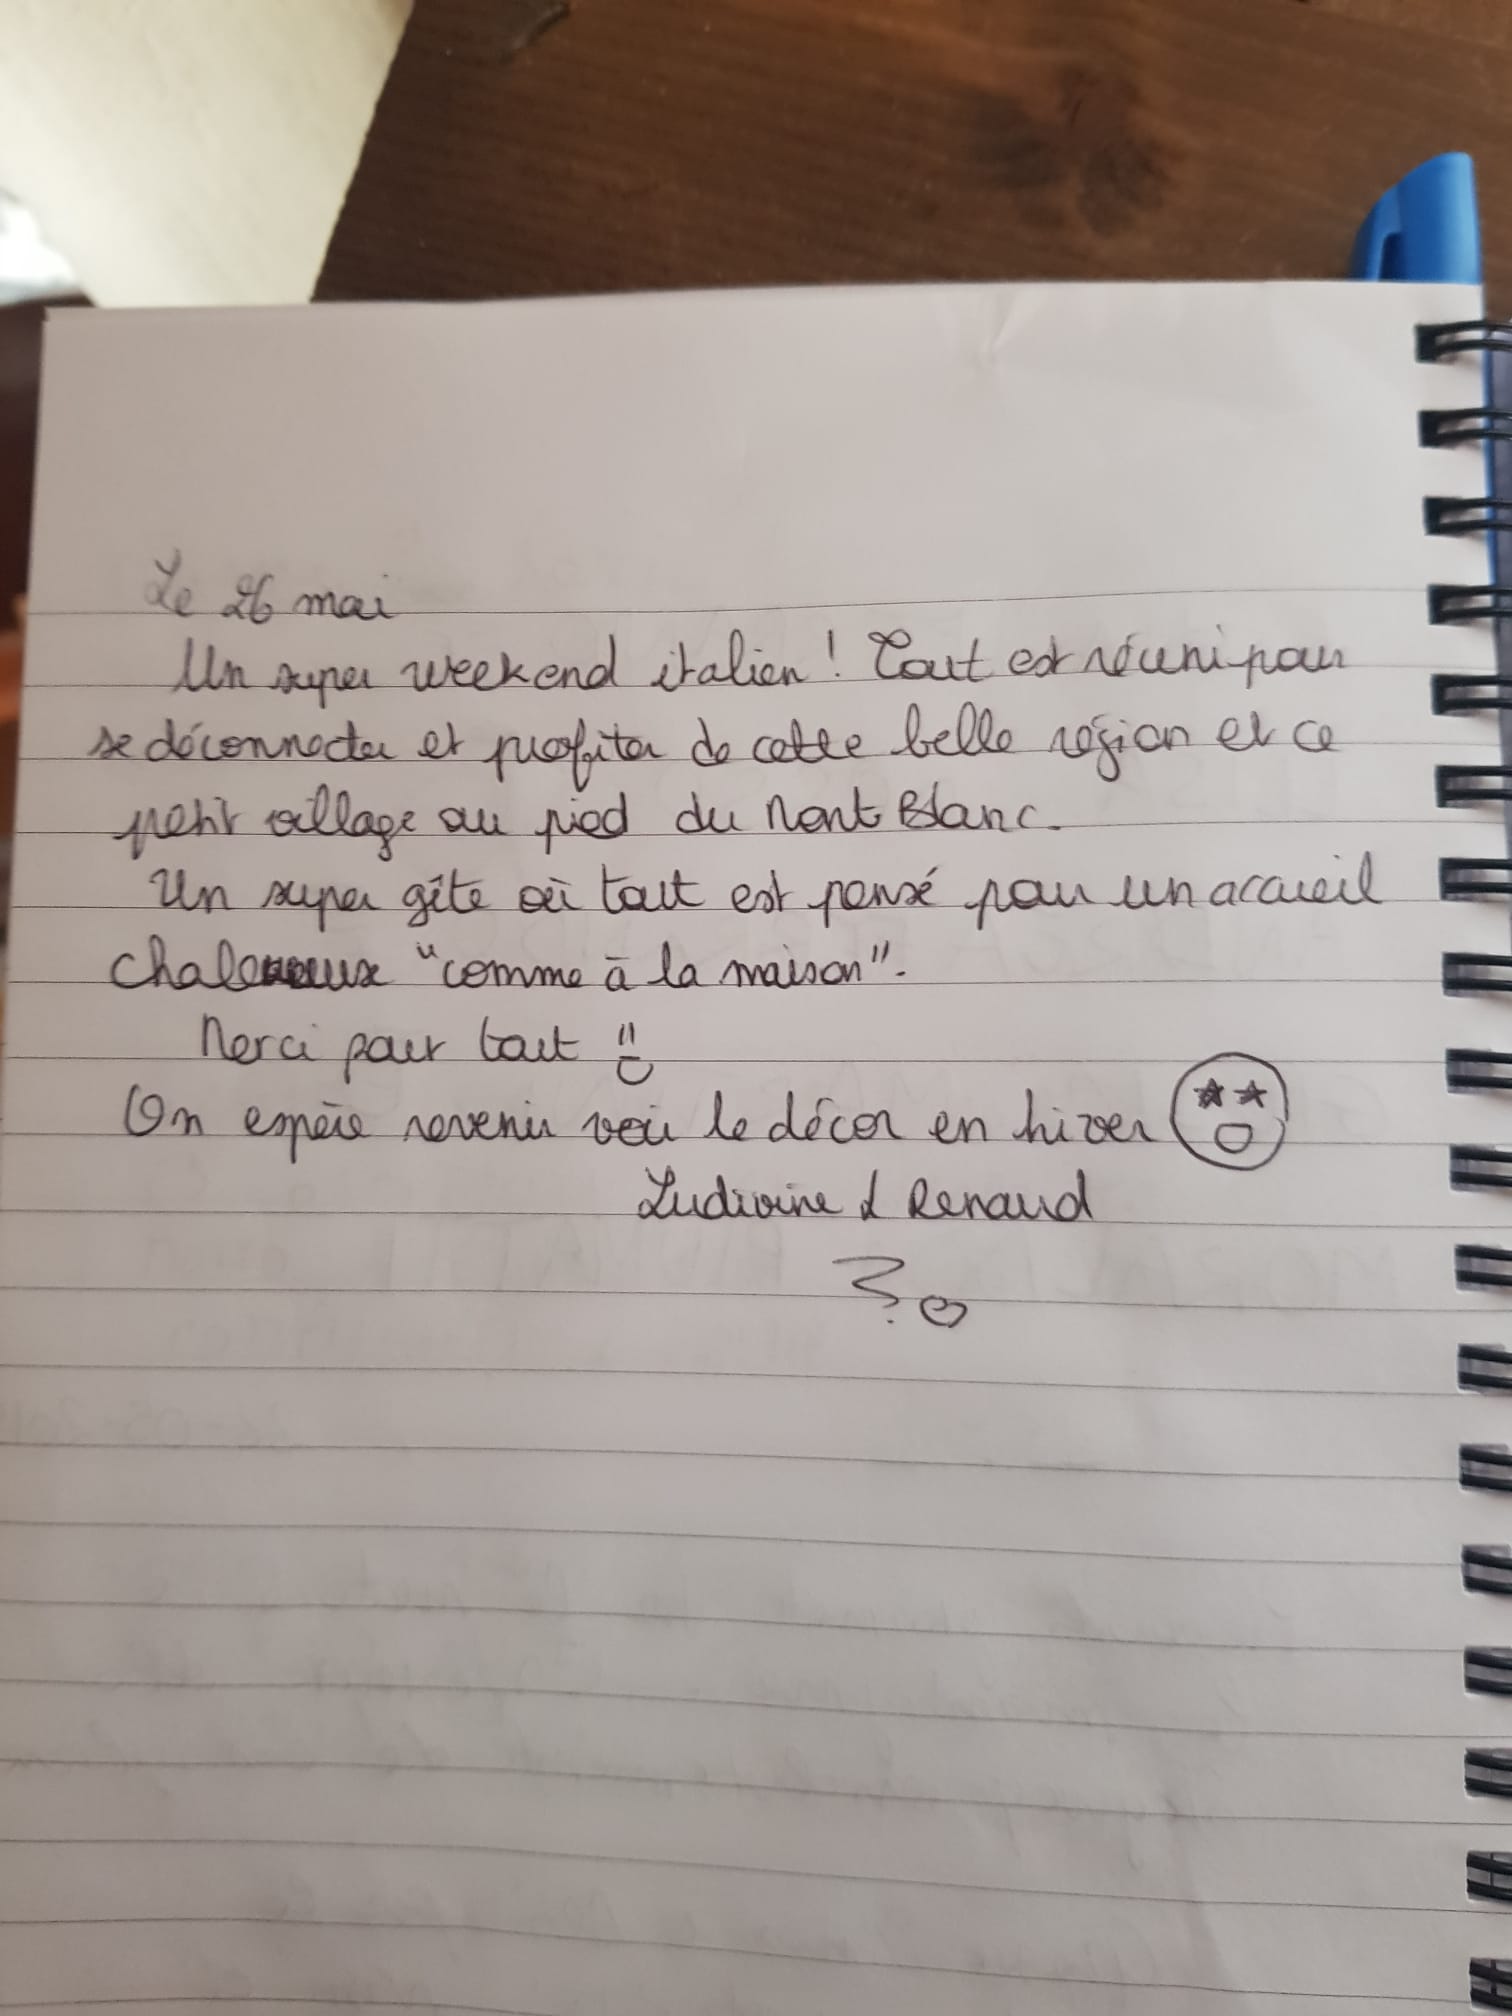 Le 26 mai
Un super weekend italien ! Tout est réuni pour
se déconnecter et profiter de cette belle région et ce
petit village au pied du Mont Blanc.
Un super gîte où tout est pensé pour un accueil
chaleureux "comme à la maison".
Merci pour tout
On espère revenir voir le décor en hiver
Ludivine & Renaud